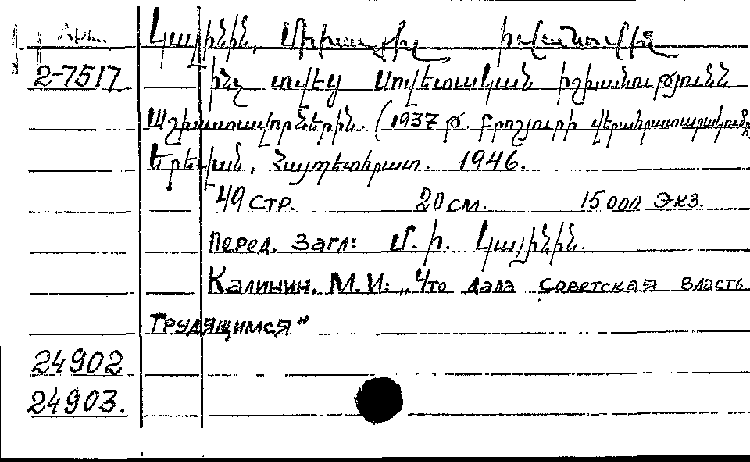 Կալինին, Միխայիլ Իվանովիչ
2-7517 Ինչ տվեց Սովետական իշխանությունն
Աշխատավորներին. (1937 թ. բրոշյուրի վերահրատարակումը
Երևան, Հայպետհրատ. 1946.
49 стр. 20 см. 15000 экз.
Перед. Загл: Մ. Ի. Կալինին.
Калинин, М. И: „Что дала Советская власть
трудящимся"
24902
24903.